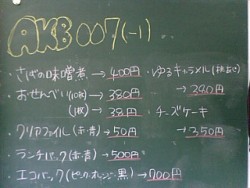 AKB 007(-1)
・さばの味噌煮 → 400円
・おせんべい(10枚) → 380円
(1枚) → 38円
・クリアファイル(赤・青) → 50円
・ランチパック(赤・青) → 500円
・エコバック(ピンク・オレンジ・黒) → 700円
・ゆるキャラメル
→ 290円
・チーズケーキ
→ 350円